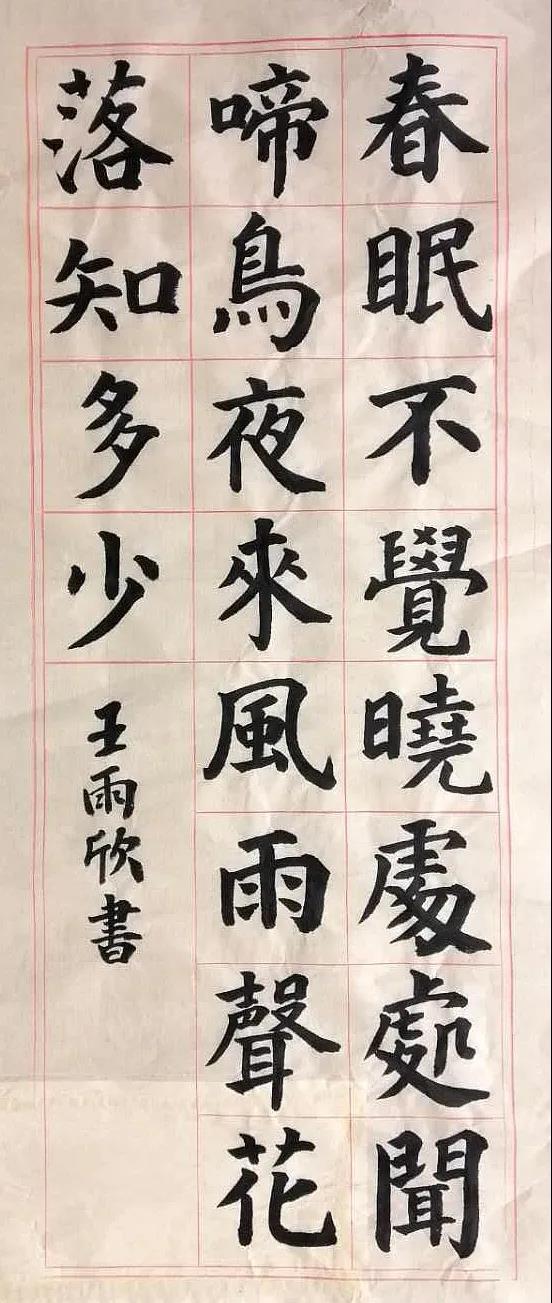 春眠不覺曉處處聞
啼鳥夜來風雨聲花
落知多少
王雨欣書